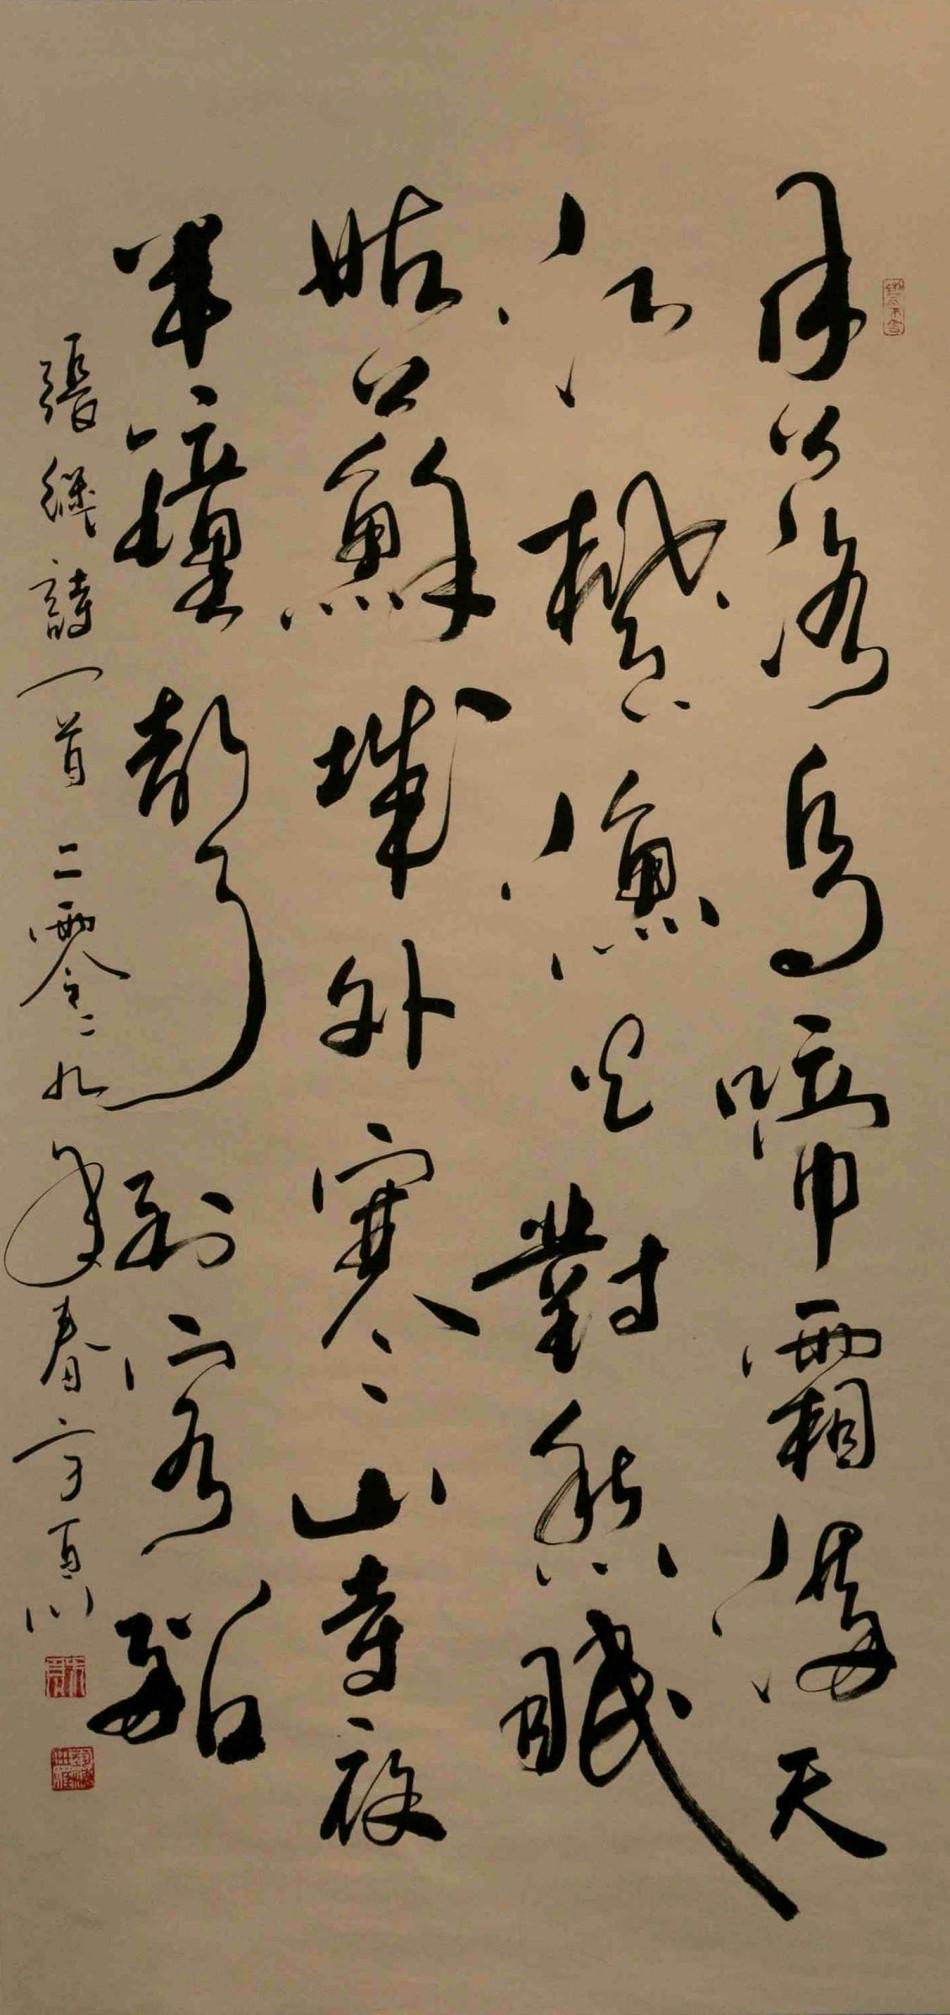 月落烏啼霜满天
江楓漁火對愁眠
姑蘇城外寒山寺夜
半鐘聲到客船
張继詩一首二零一九年春方百川